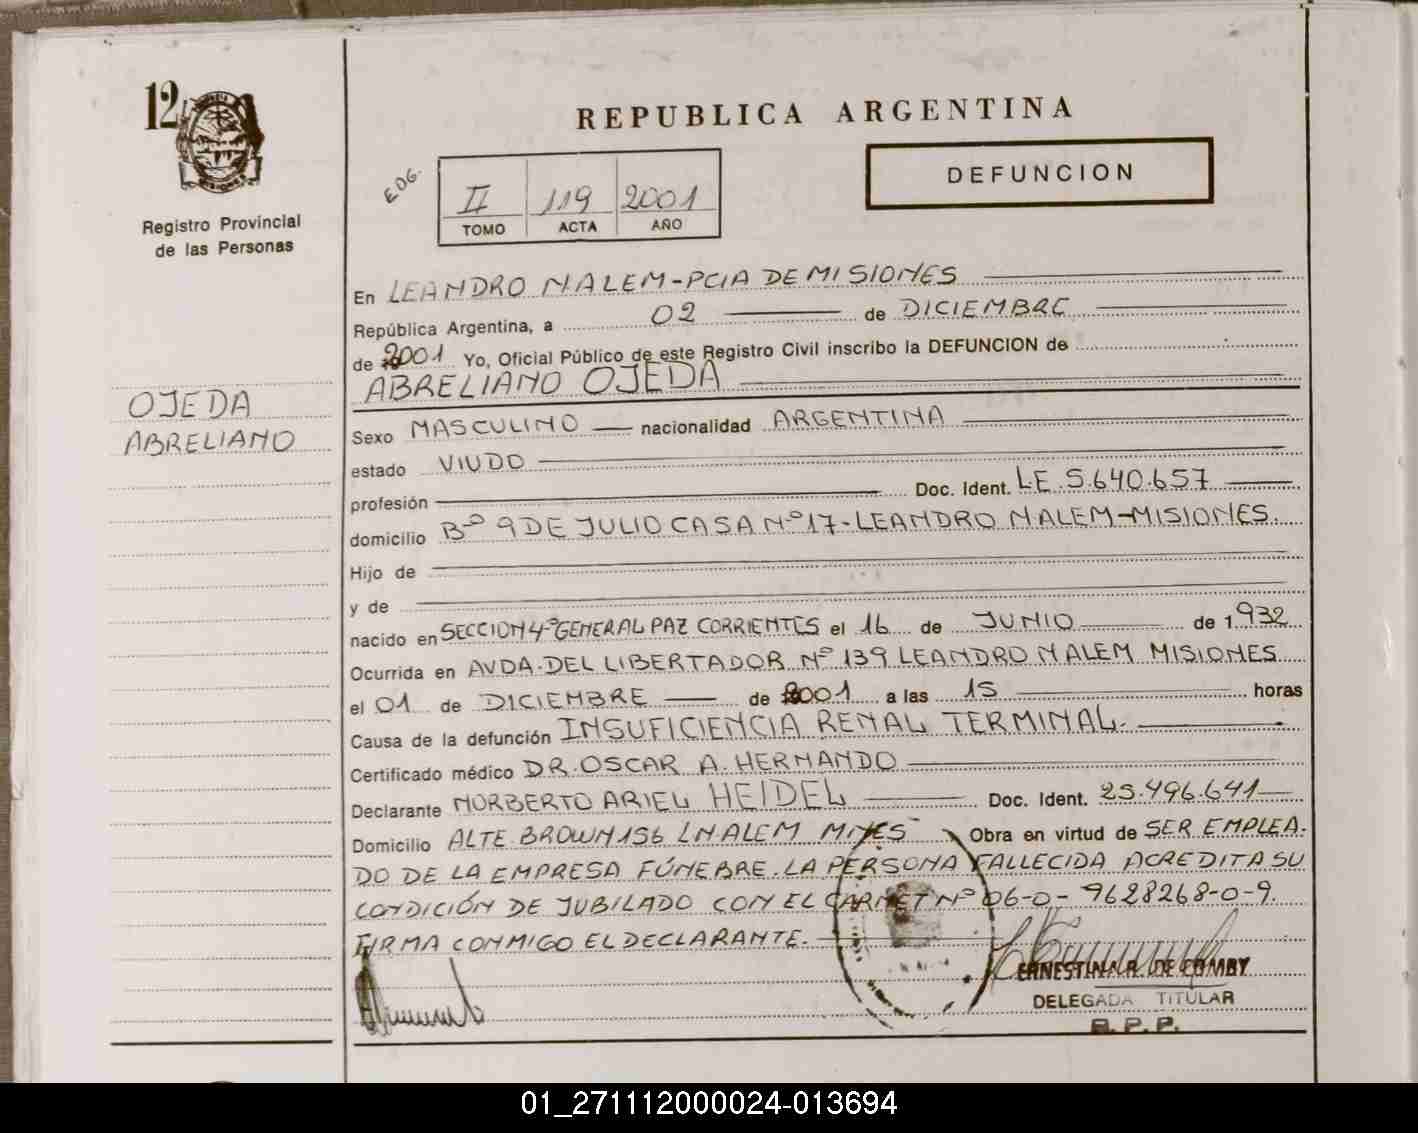 12
REPUBLICA ARGENTINA
Registro Provincial
de las Personas
EDG.
II 119 2001
TOMO ACTA AÑO
DEFUNCION
En LEANDRO N. ALEM-PCIA DE MISIONES
República Argentina, a 02 de DICIEMBRE
de 2001 Yo, Oficial Público de este Registro Civil inscribo la DEFUNCION de
ABRELIANO OJEDA
OJEDA
ABRELIANO
Sexo MASCULINO nacionalidad ARGENTINA
estado VIUDO
profesión Doc. Ident. LE.5.640.657
domicilio Bº 9 DE JULIO CASA Nº 17-LEANDRO N ALEM-MISIONES.
Hijo de
y de
nacido en SECCION 4º GENERAL PAZ CORRIENTES el 16 de JUNIO de 1.932
Ocurrida en AVDA. DEL LIBERTADOR Nº 139 LEANDRO N ALEM MISIONES
el 01 de DICIEMBRE de 2001 a las 15 horas
Causa de la defunción INSUFICIENCIA RENAL TERMINAL.
Certificado médico DR. OSCAR A. HERNANDO
Declarante NORBERTO ARIEL HEIDEL Doc. Ident. 25.496.641
Domicilio ALTE. BROWN 156 LN ALEM MNES Obra en virtud de SER EMPLEA-
DO DE LA EMPRESA FÚNEBRE. LA PERSONA FALLECIDA ACREDITA SU
CONDICIÓN DE JUBILADO CON EL CARNET Nº 06-0-9628268-0-9.
FIRMA CONMIGO EL DECLARANTE.
ERNESTINA R. DE COMBY
DELEGADA TITULAR
R. P. P.
01_271112000024-013694